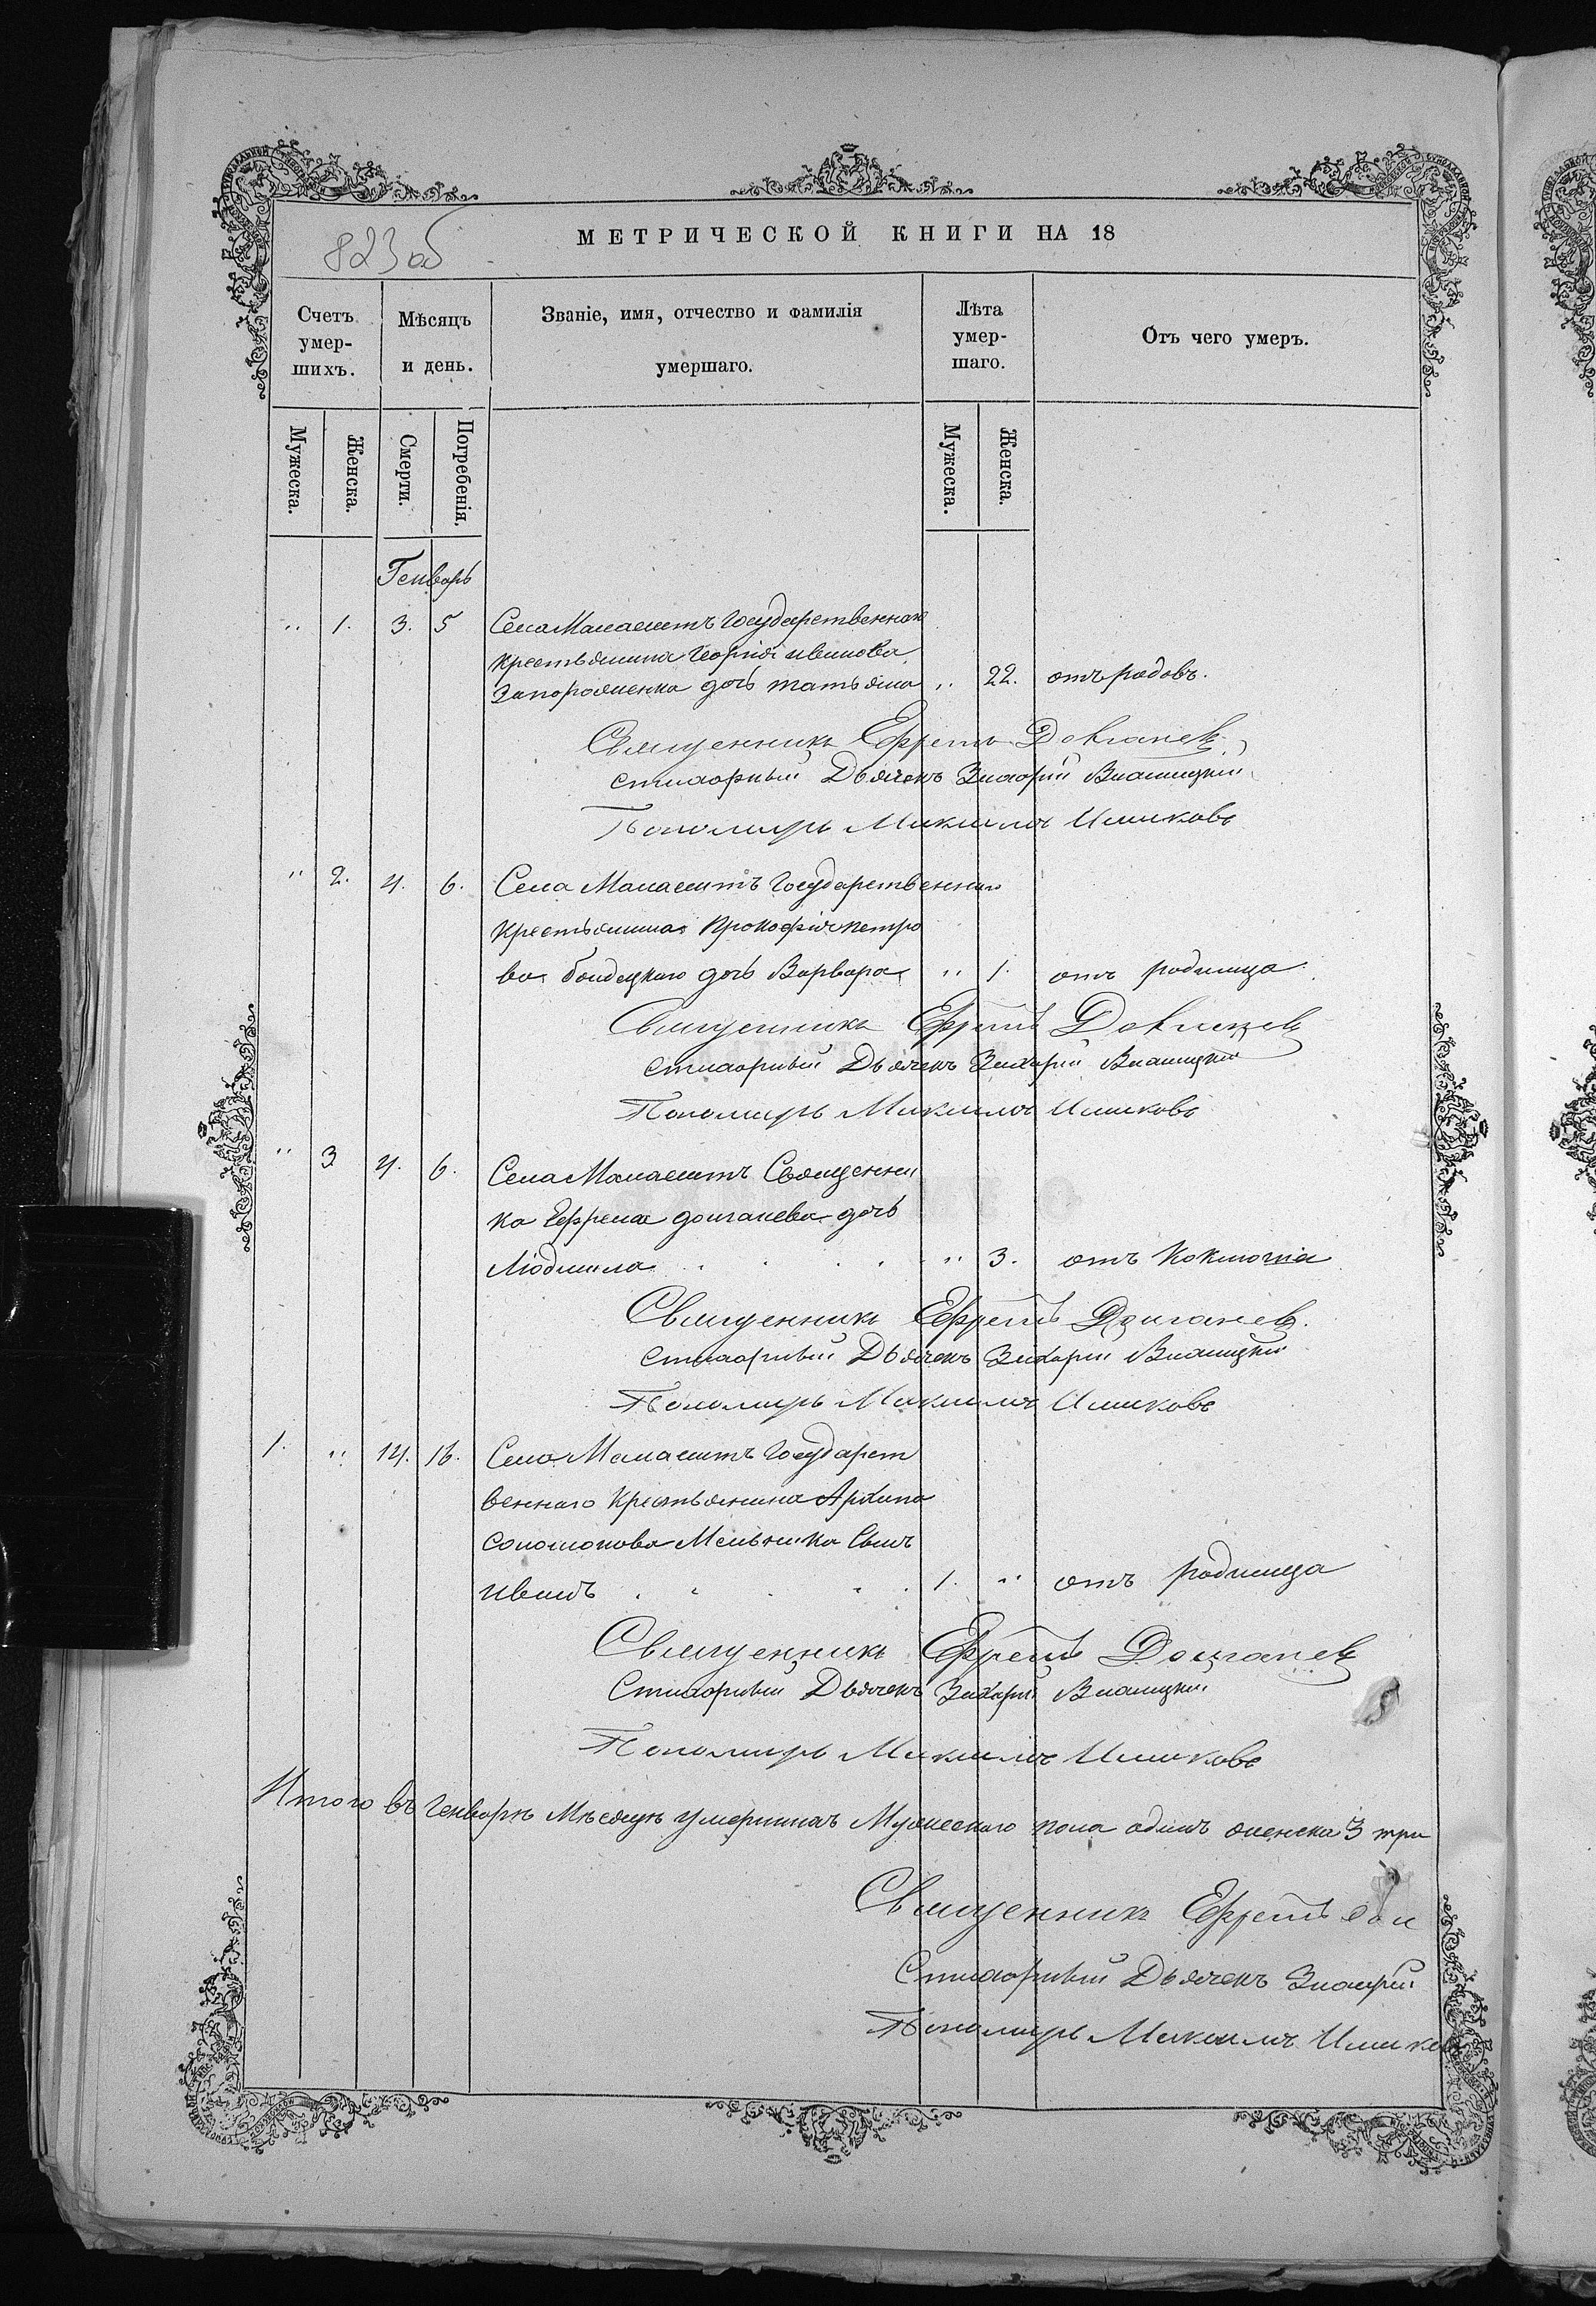 МЕТРИЧЕСКОЙ КНИГИ НА 18
823об
Счетъ умер-шихъ.
Мѣсяцъ и день.
Званіе, имя, отчество и фамилія умершаго.
Лѣта умер-шаго.
Отъ чего умеръ.
Мужеска.
Женска.
Смерти.
Погребенія.
Мужеска.
Женска.
Генварь
" 1. 3. 5 Села Манаештъ Государственнаго
крестьянина Георгія иванова
Запороженка дочь татьяна " 22. отъ родовъ.
Священникъ Ефремъ Долганевъ
стихарный Дьячекъ Захарій
Пономарь Михаилъ
" 2. 4. 6. Села Манаештъ Государственнаго
Крестьянина Прокофія петро
ва дочь Варвара " 1. отъ родимца
Священникъ Ефремъ Долганевъ
Стихарный Дьячекъ Захарій
Пономарь Михаилъ
" 3 4. 6. Села Манаештъ Священни
ка Ефрема долганева дочь
Людмила " 3. отъ Коклюша
Священникъ Ефремъ Долганевъ.
Стихарный Дьячекъ Захарій
Пономарь Михаилъ
1. " 14. 16. Села Манаештъ Государст
веннаго Крестьянина Архипа
соломонова Мельника Сынъ
иванъ 1. " отъ родимца
Священникъ Ефремъ Долганевъ
Стихарный Дьячекъ Захарій
Пономарь Михаилъ
Итого въ Генварѣ Мѣсяцѣ умершихъ Мужескаго пола одинъ женска 3 три
Священникъ Ефремъ Дол
Стихарный Дьячекъ Захарій
Пономарь Михаилъ